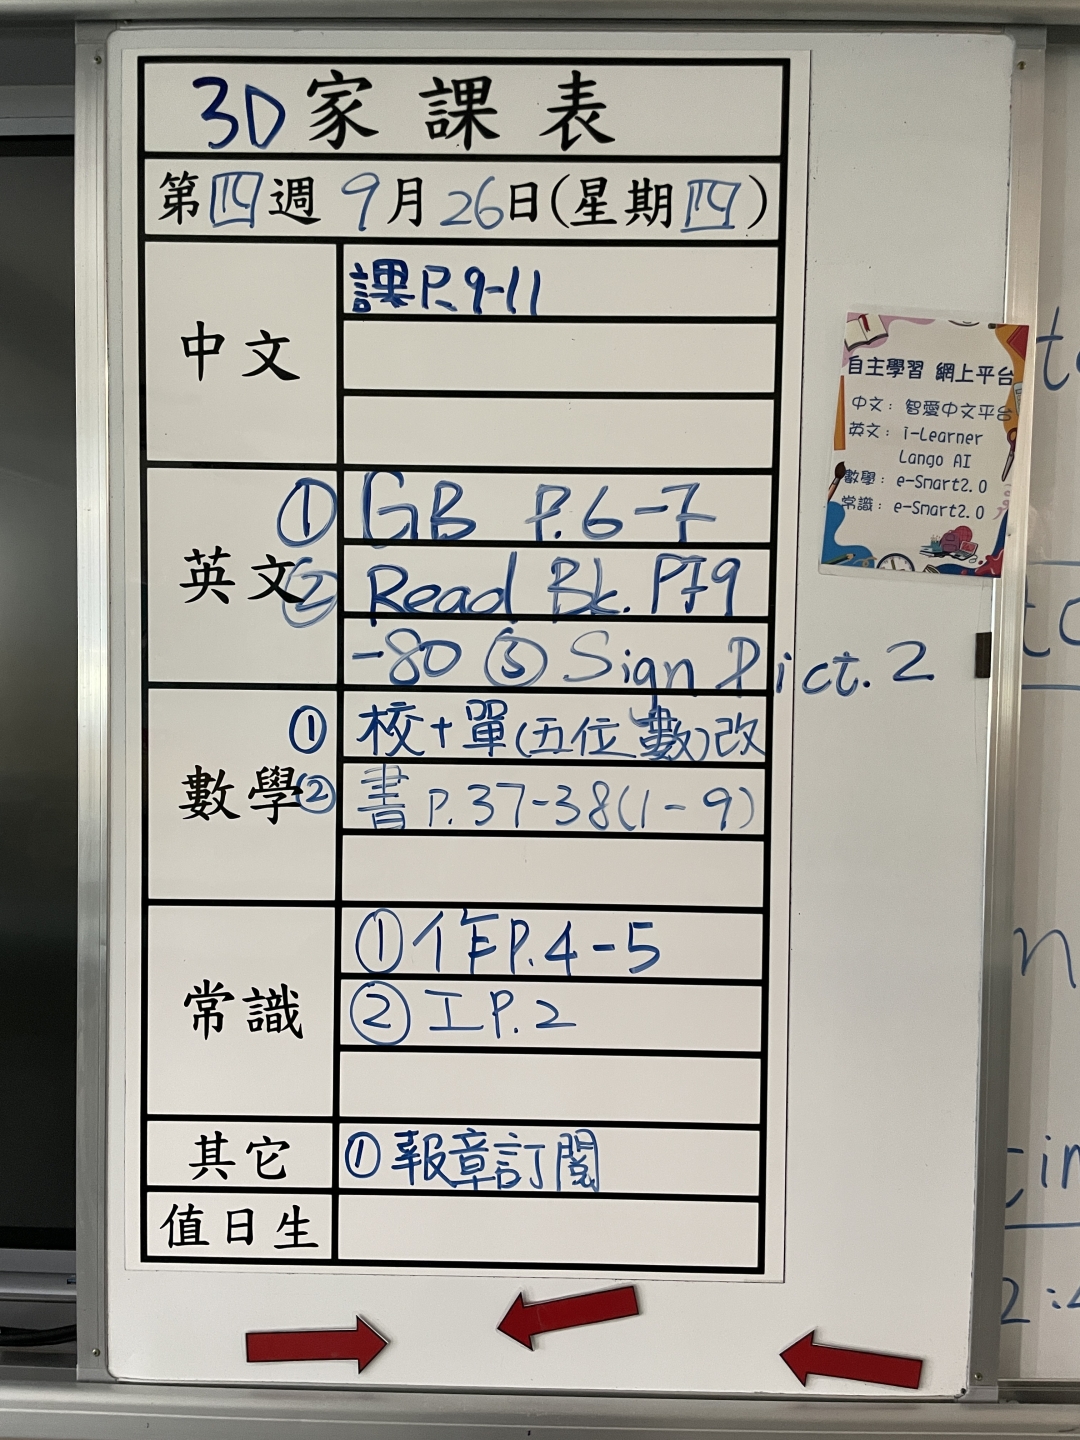 3D家課表
第四週 9月26日(星期四)
中文
課P.9-11
英文
① GB P.6-7
② Read Bk. P79
-80 ③ Sign Dict. 2
數學
① 校+單(五位數)改
② 書P.37-38(1-9)
常識
①作P.4-5
②工P.2
其它
①報章訂閱
值日生
自主學習 網上平台
中文：智愛中文平台
英文：i-Learner
Lango AI
數學：e-Smart2.0
常識：e-Smart2.0